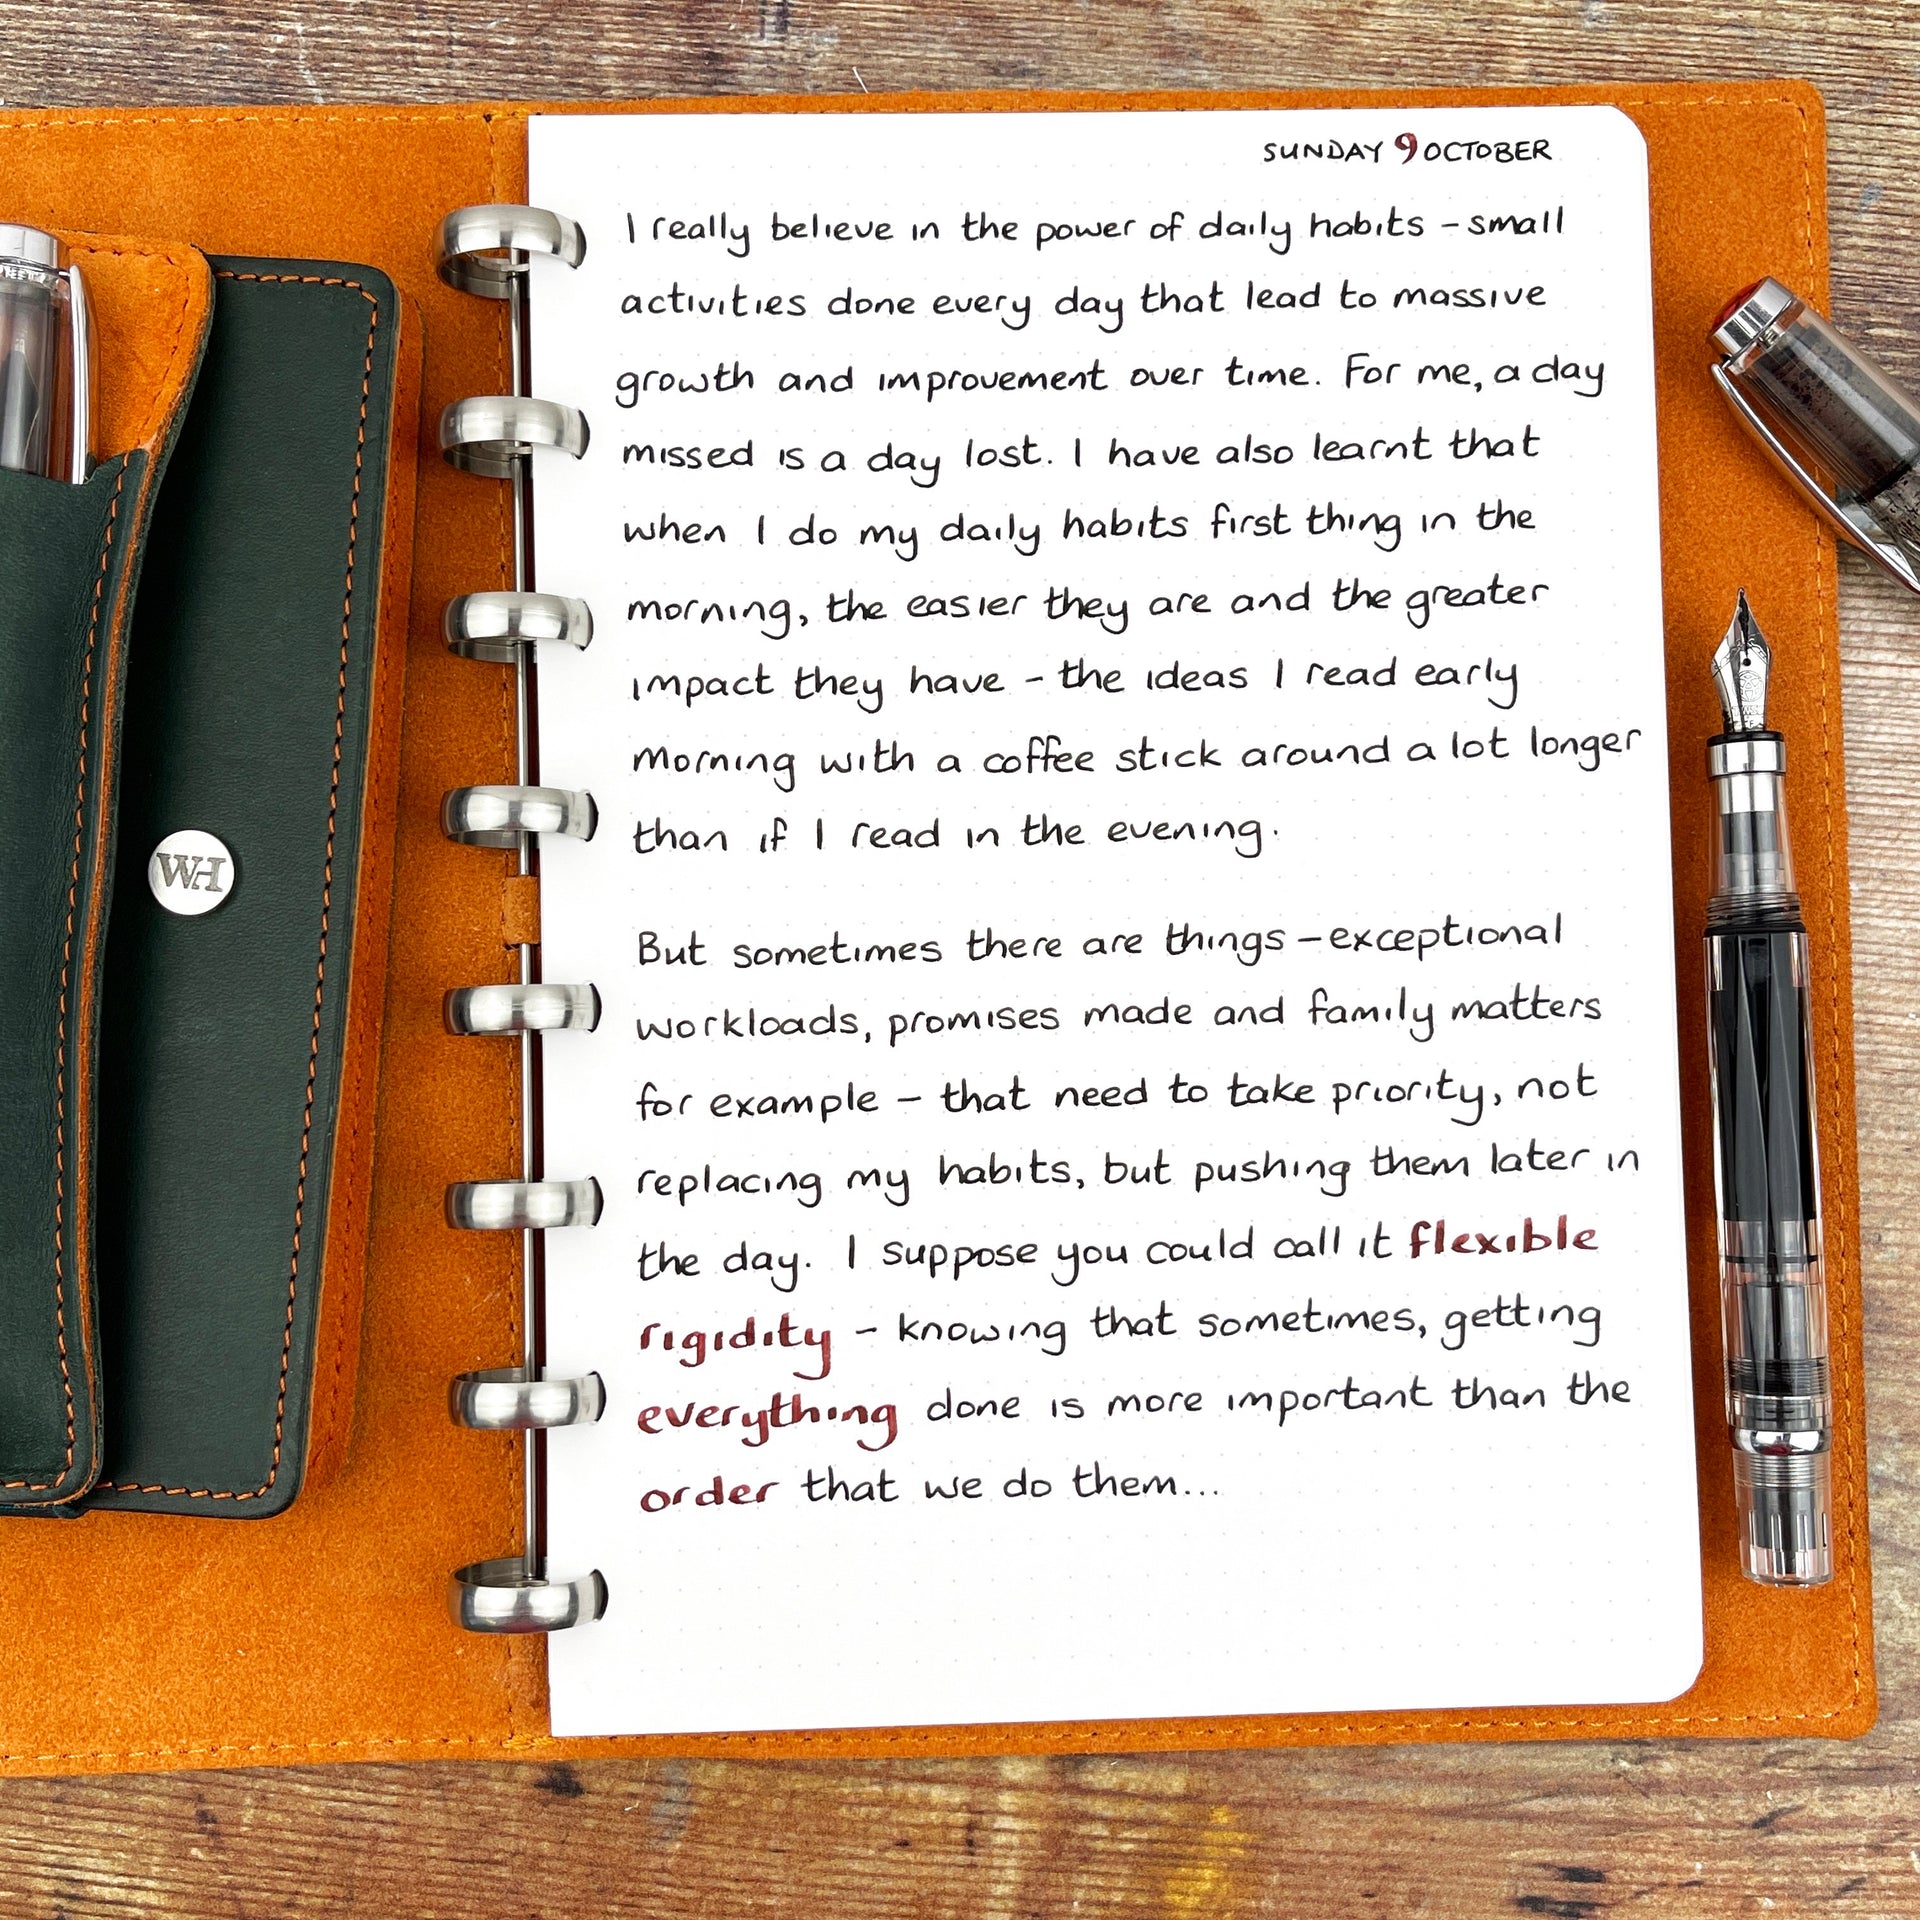 SUNDAY 9 OCTOBER
I really believe in the power of daily habits – small
activities done every day that lead to massive
growth and improvement over time. For me, a day
missed is a day lost. I have also learnt that
when I do my daily habits first thing in the
morning, the easier they are and the greater
impact they have – the ideas I read early
morning with a coffee stick around a lot longer
than if I read in the evening.
But sometimes there are things – exceptional
workloads, promises made and family matters
for example – that need to take priority, not
replacing my habits, but pushing them later in
the day. I suppose you could call it flexible
rigidity – knowing that sometimes, getting
everything done is more important than the
order that we do them...
WH